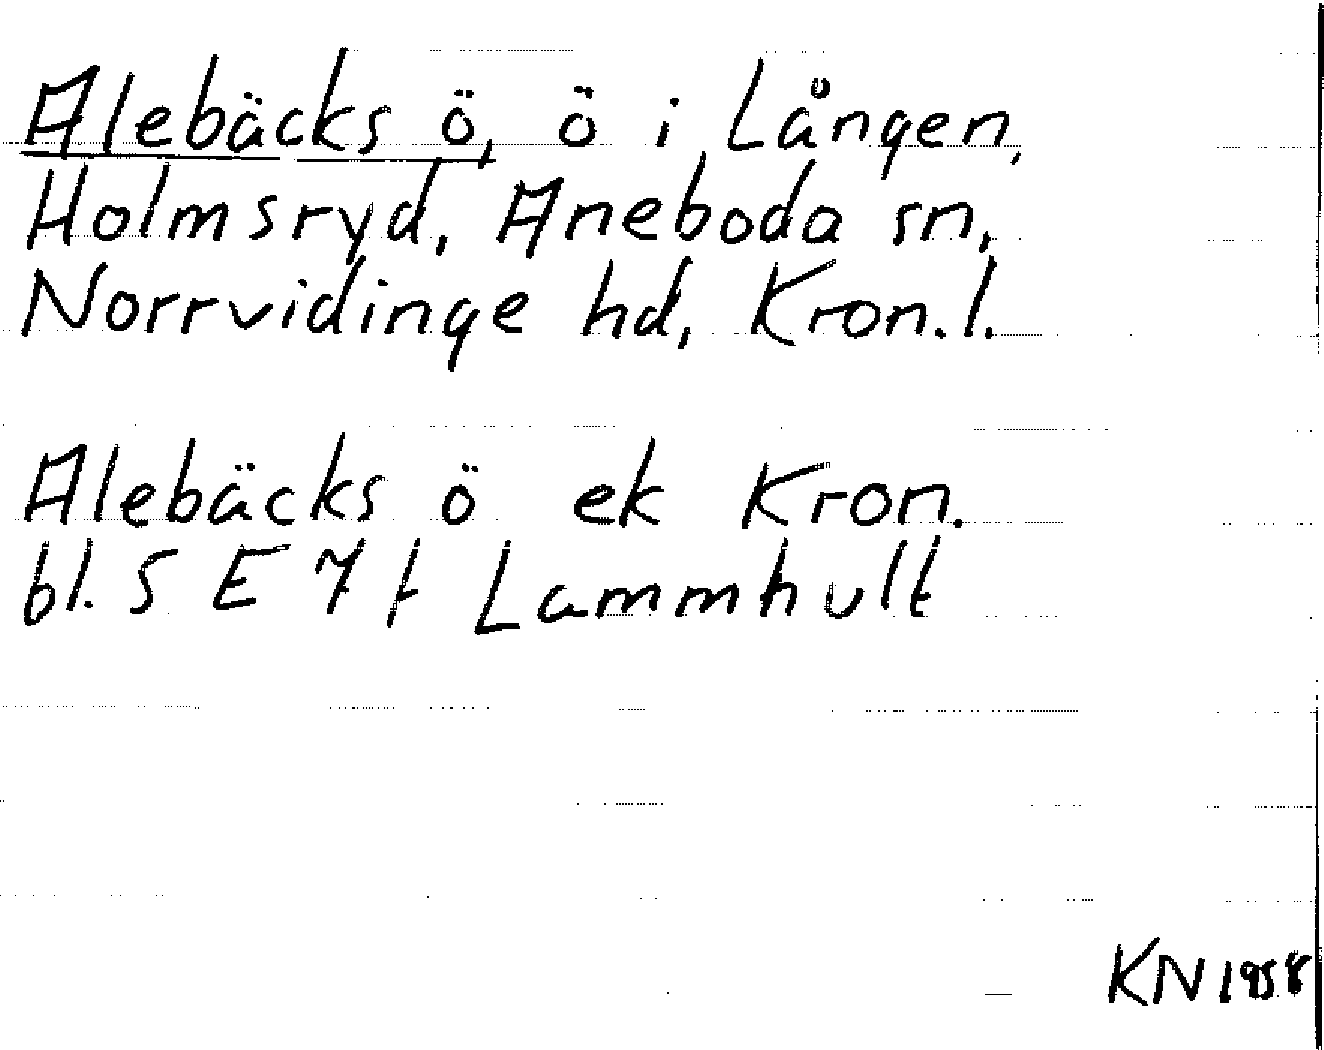 Alebäcks ö, ö i Lången,
Holmsryd, Aneboda sn,
Norrvidinge hd, Kron.l.
Alebäcks ö ek Kron.
bl. 5 E 7 f Lammhult
KN 1958